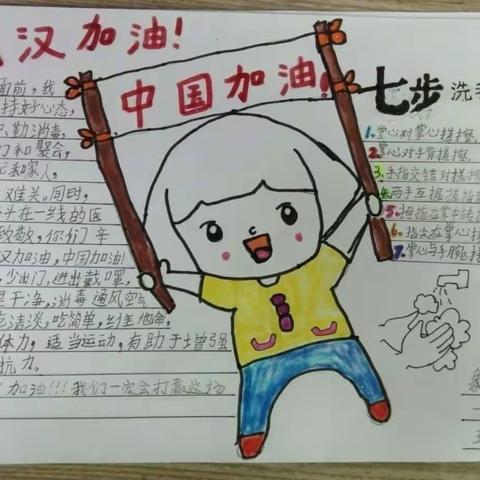 汉加油!
中国加油!
面前,我
持好心态,
勤消毒,
们和聚会,
己和家人,
难关。同时,
斗在一线的医
致敬,你们辛
汉加油,中国加油!
少出门,进出戴口罩,
干净,消毒通风空气
吃清淡,吃简单,维他命。
体力,适当运动,有助于增强
抗力。
加油!!!我们一定会打赢这场
七步洗手
1.掌心对掌心搓擦
2.掌心对手背搓擦
3.手指交错对搓擦
4.两手互握搓
5.拇指在掌中搓
6.指尖在掌心搓
7.掌心与手腕搓